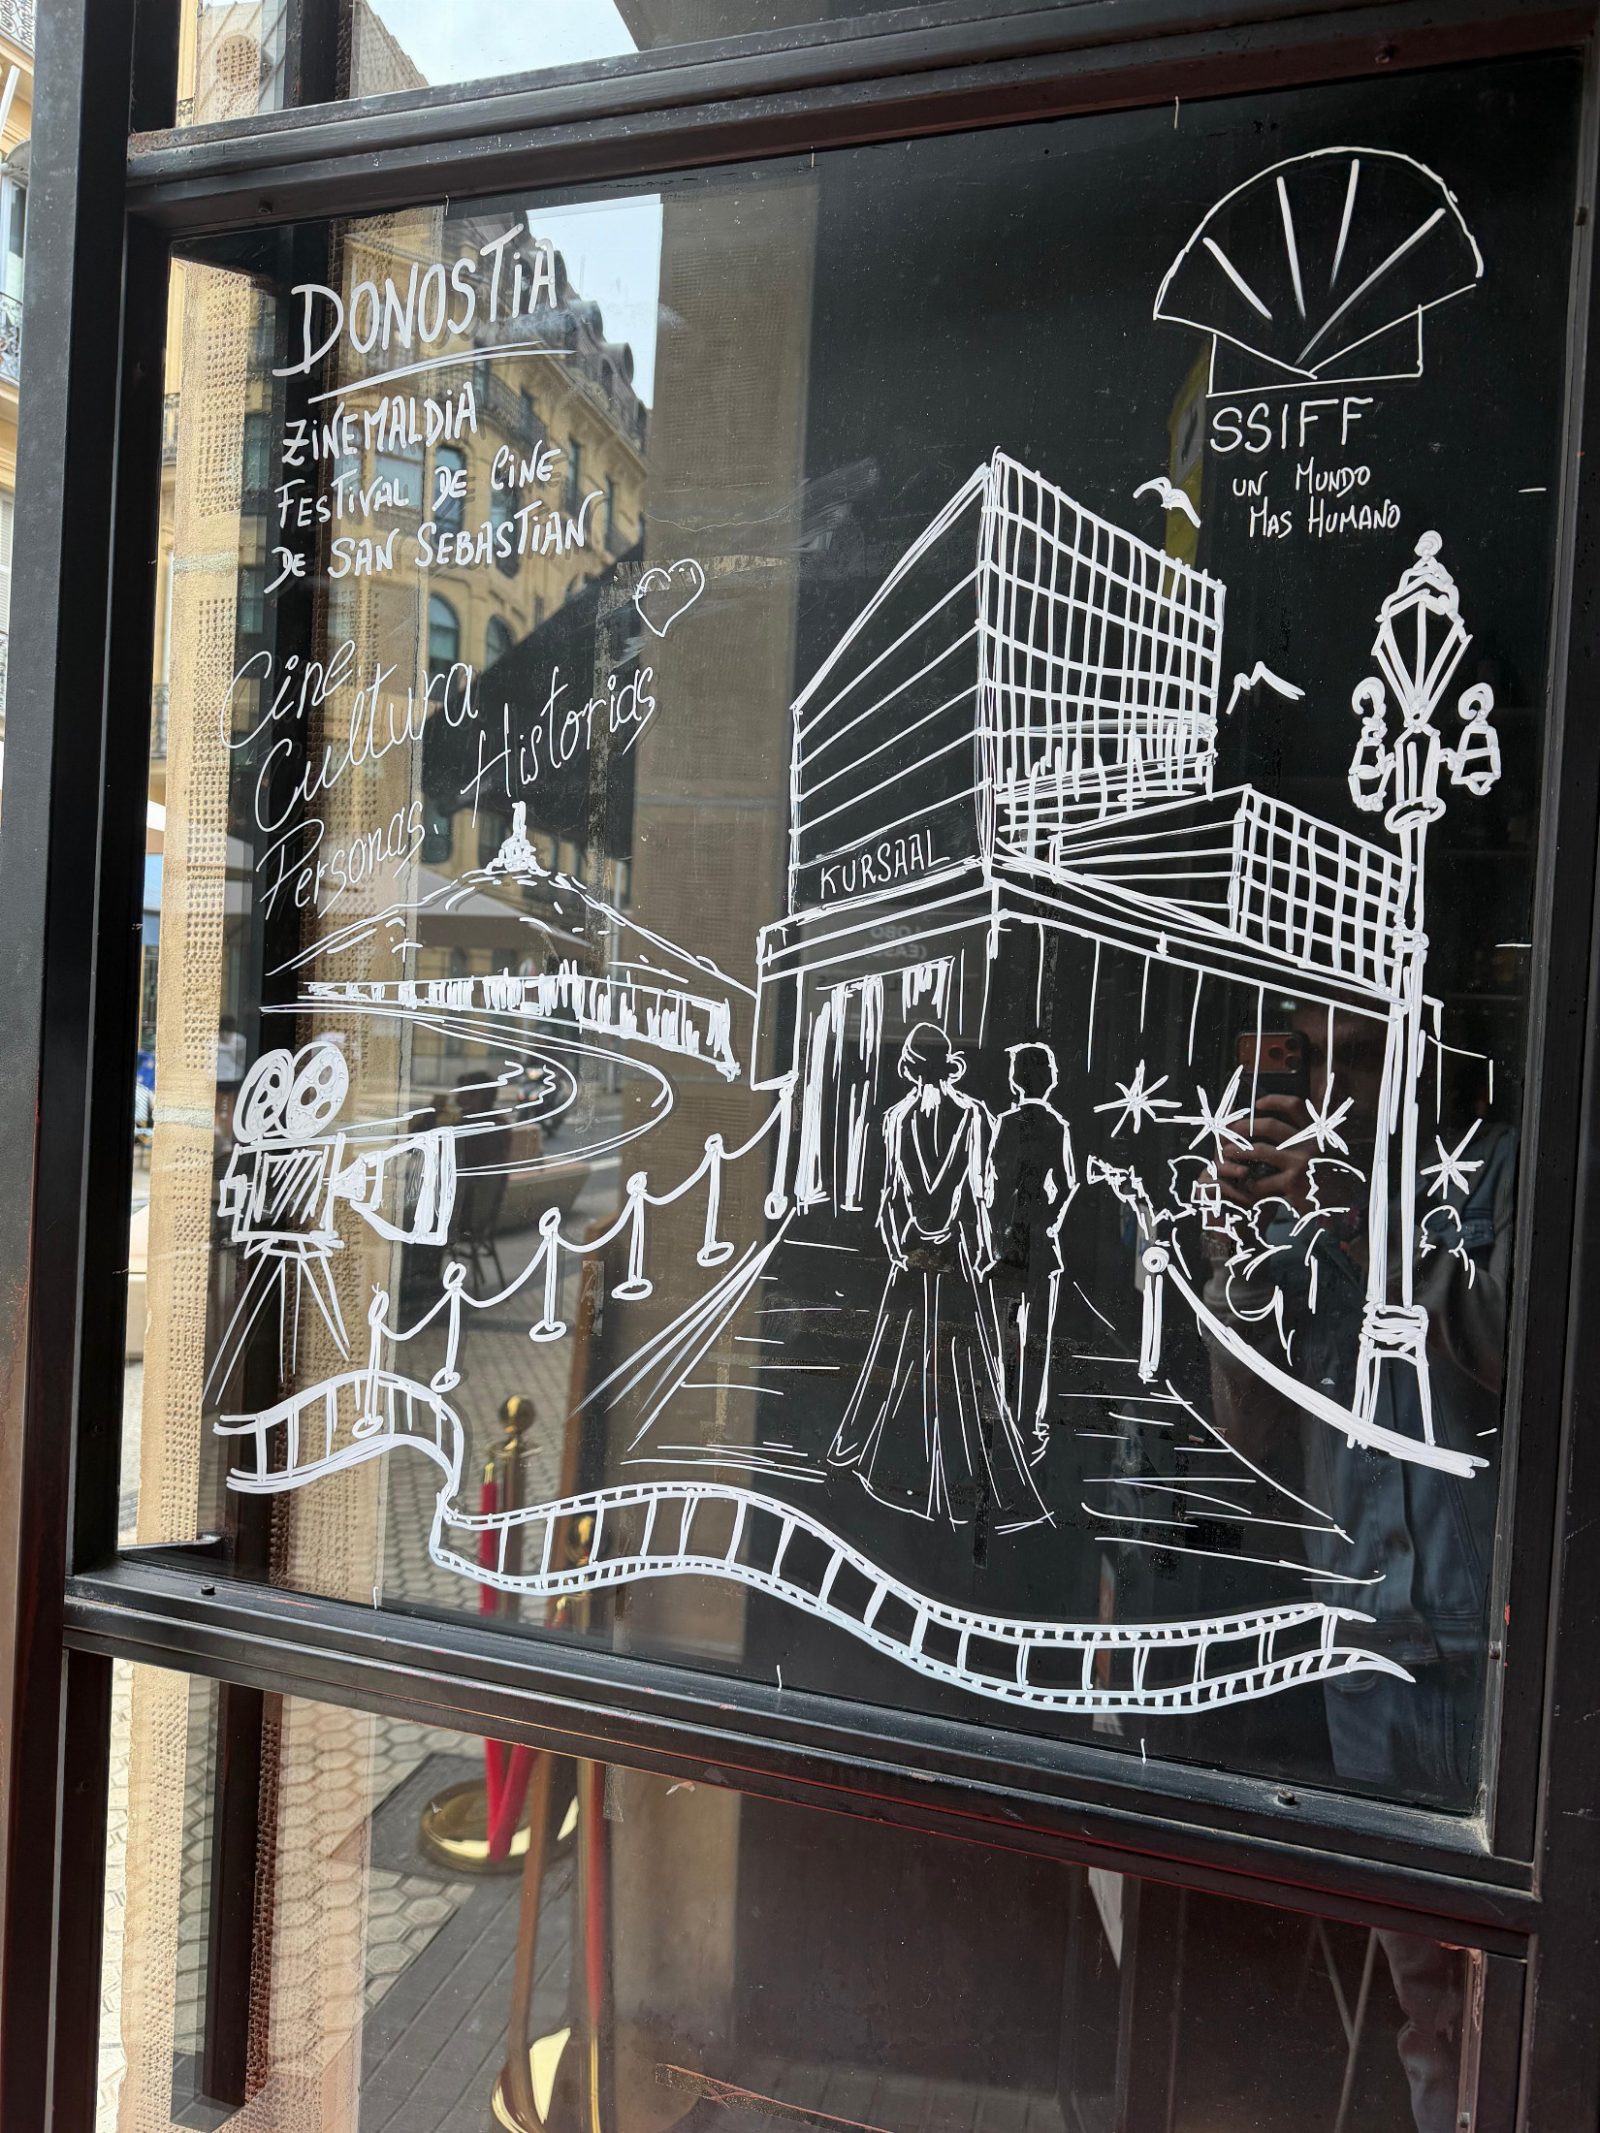 DONOSTIA
ZINEMALDIA
FESTIVAL DE CINE
DE SAN SEBASTIAN
Cine.
Cultura
Personas. Historias
SSIFF
UN MUNDO
MAS HUMANO
KURSAAL